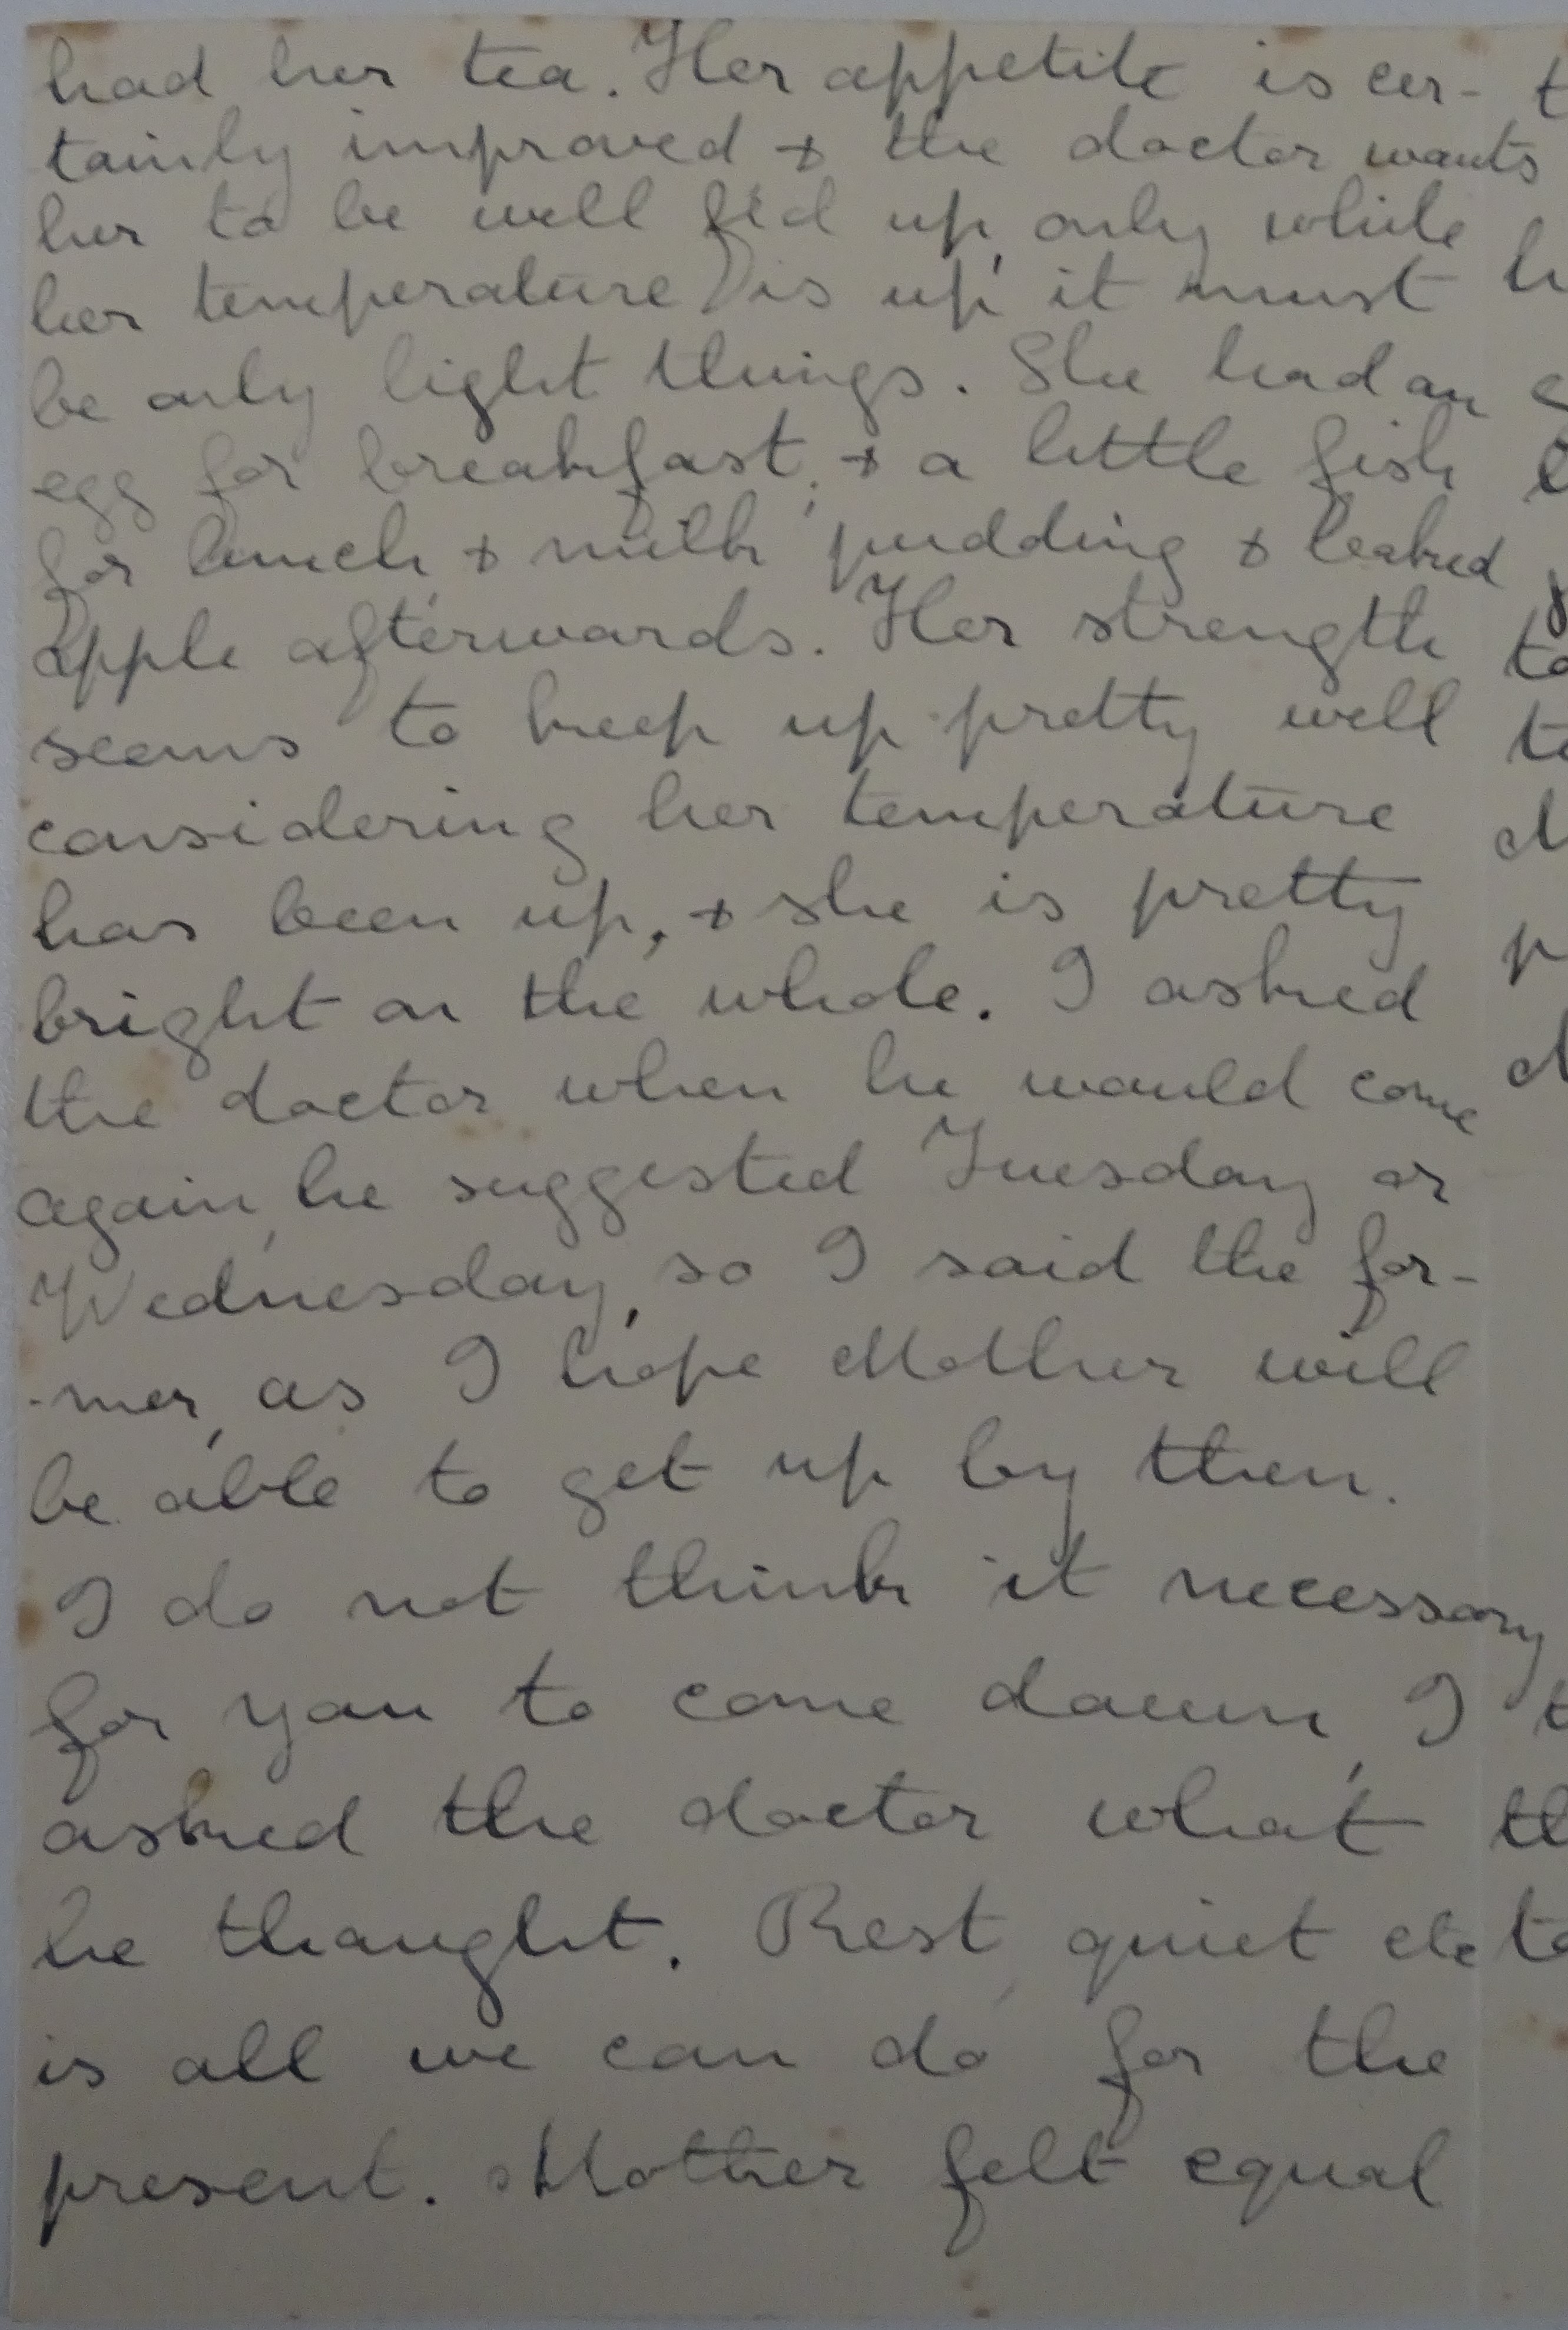 had her tea. Her appetite is cer-
tainly improved & the doctor wants
her to be well fed up, only while
her temperature is up it must
be only light things. She had an
egg for breakfast, & a little fish
for lunch & milk pudding & baked
apple afterwards. Her strength
seems to keep up pretty well
considering her temperature
has been up, & she is pretty
bright on the whole. I asked
the doctor when he would come
again, he suggested Tuesday or
Wednesday, so I said the for-
-mer, as I hope Mother will
be able to get up by then.
I do not think it necessary
for you to come down, I
asked the doctor what
he thought. Rest, quiet etc
is all we can do for the
present. Mother felt equal